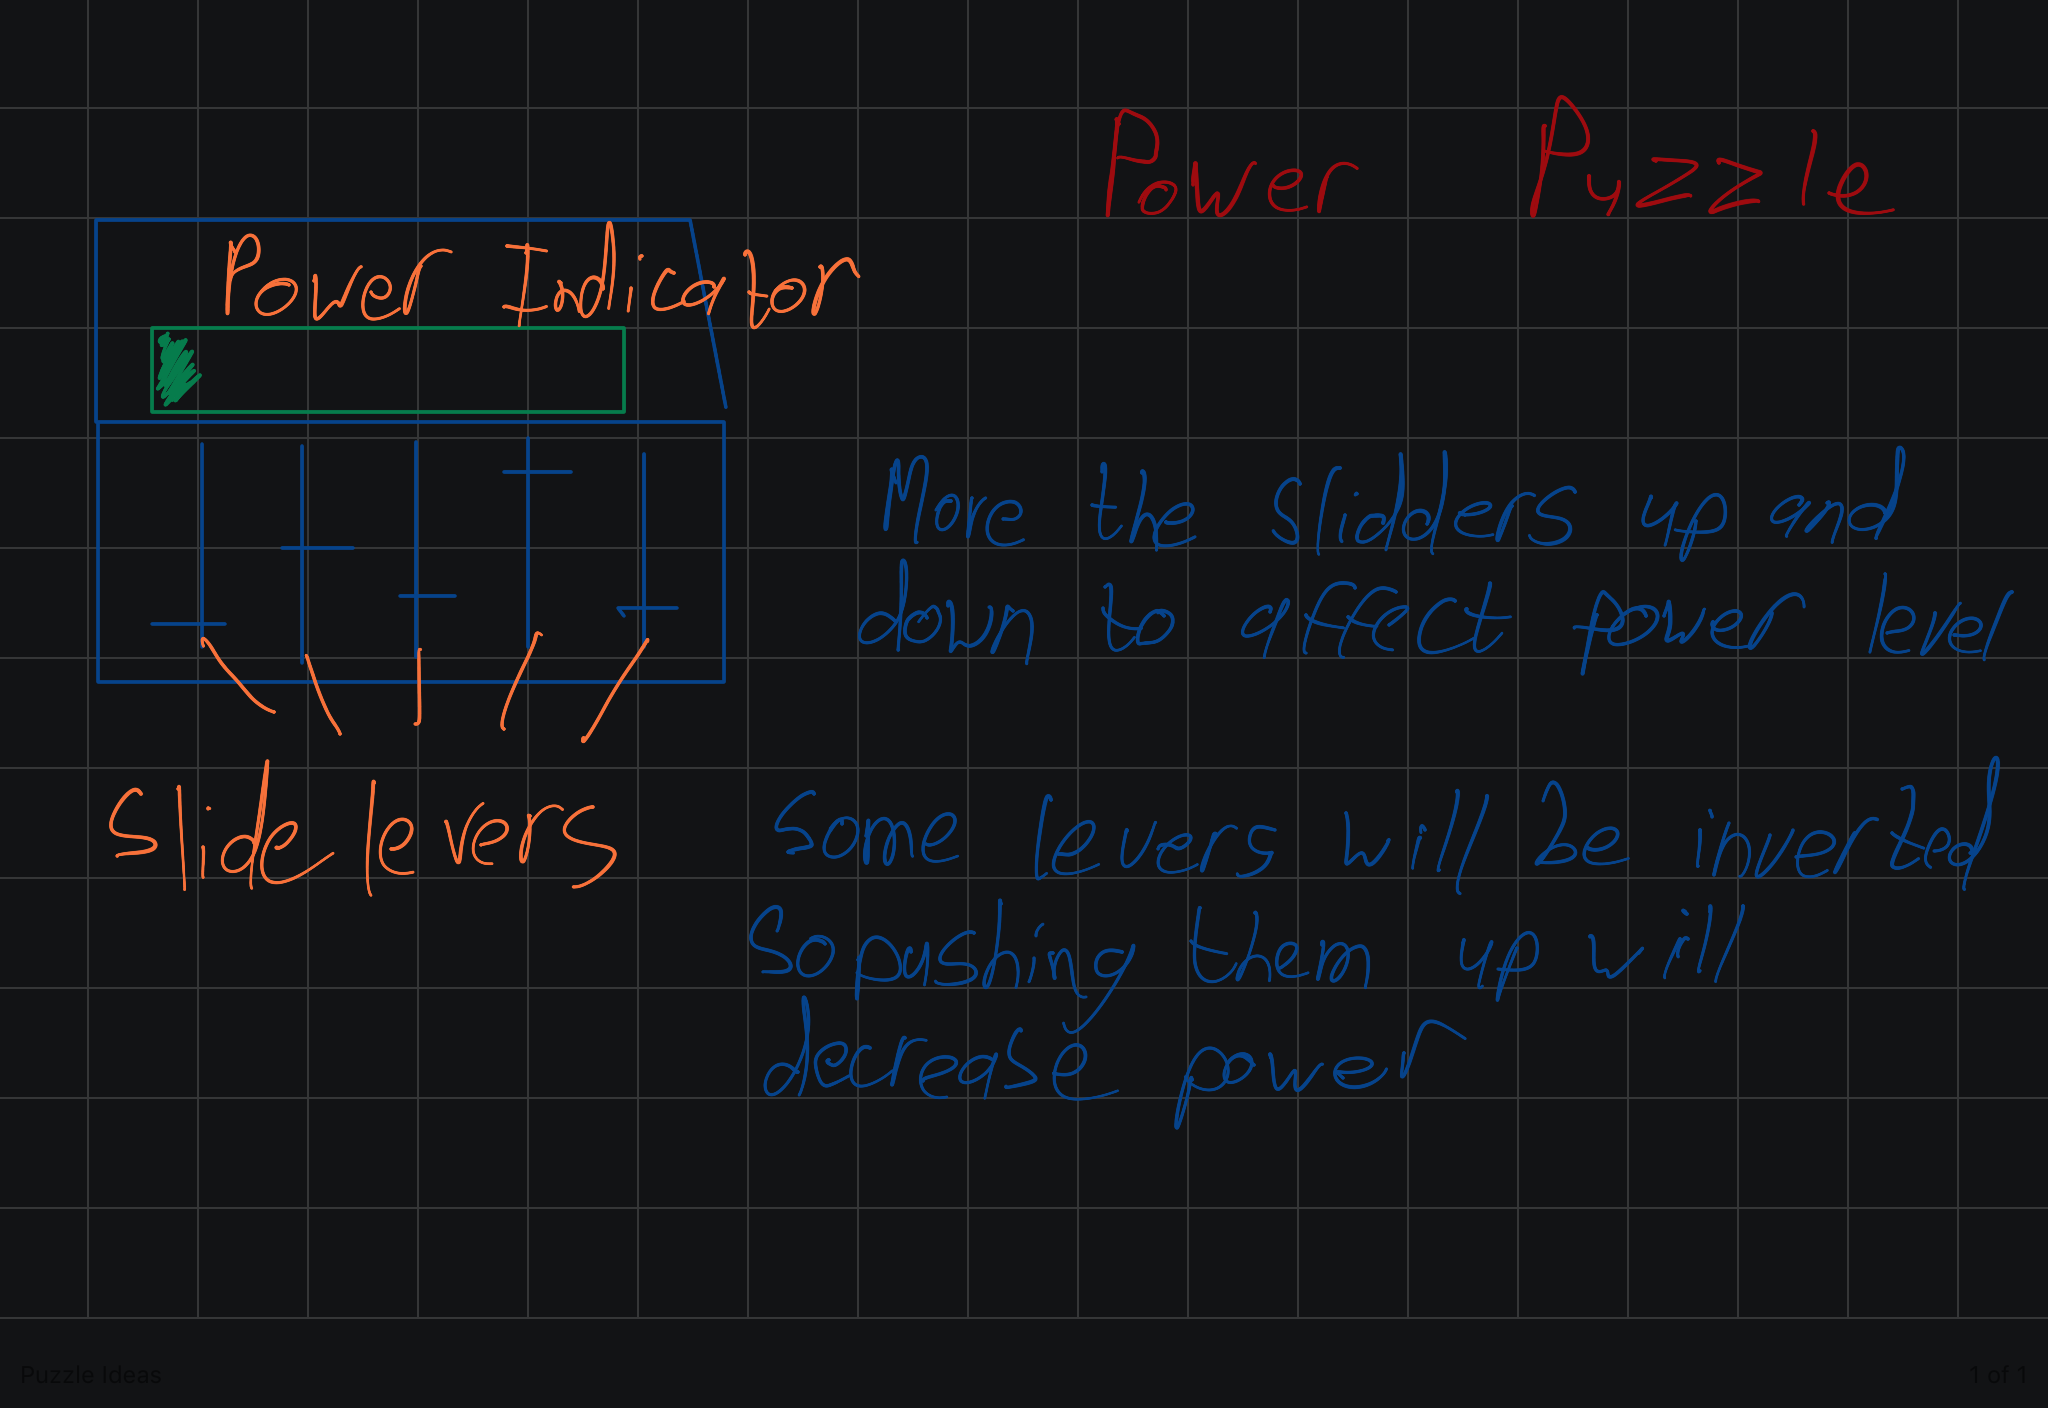 Power Puzzle
Power Indicator
More the slidders up and
down to affect power level
Slide levers
Some levers will be inverted
So pushing them up will
decrease power
Puzzle Ideas
1 of 1